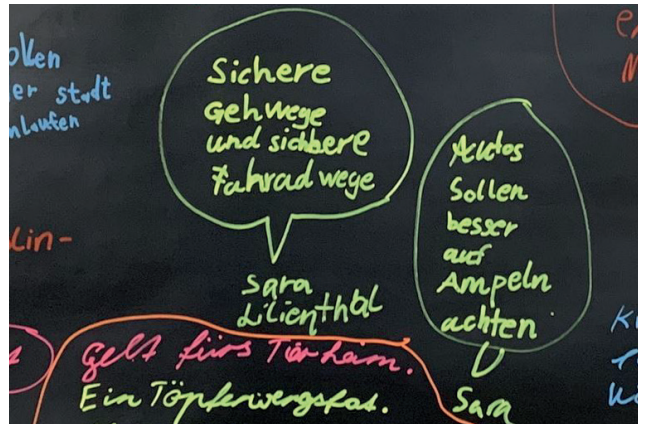 er stadt
nlaufen
Sichere
Gehwege
und sichbere
Fahrad wege
Sara
Lilienthal
Autos
Sollen
besser
auf
Ampeln
achten
Sara
lin-
gelt fürs Tierheim.
Ein Töpferwergstat.